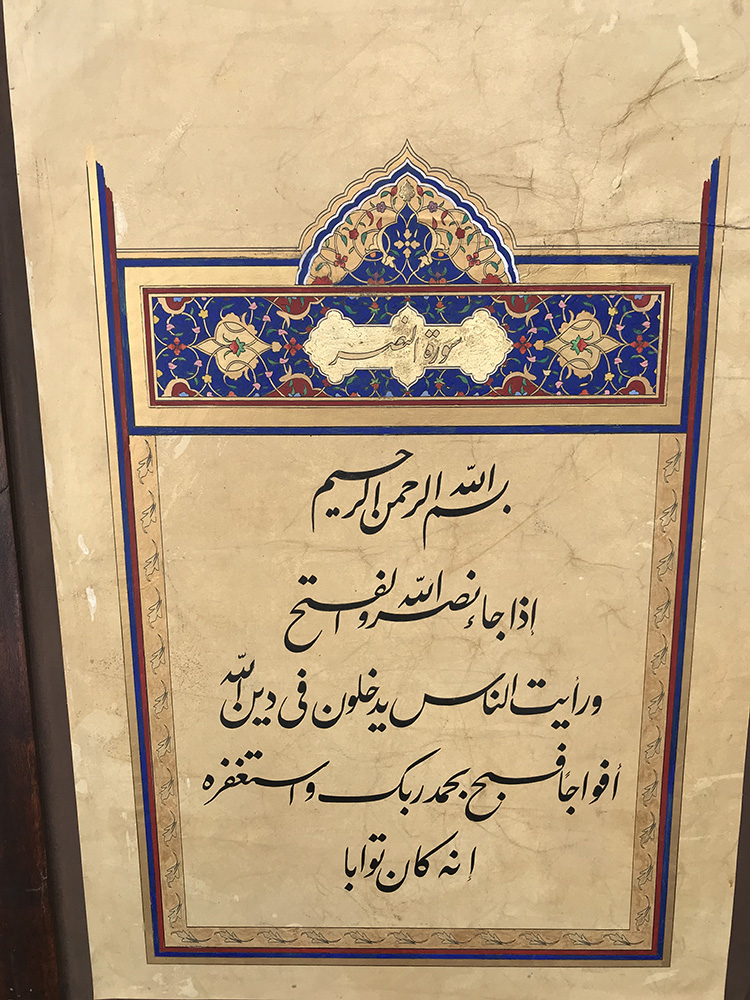 سورة النصر
بسم الله الرحمن الرحيم
إذا جاء نصر الله والفتح
ورأيت الناس يدخلون في دين الله
أفواجاً فسبح بحمد ربك واستغفره
إنه كان توابا